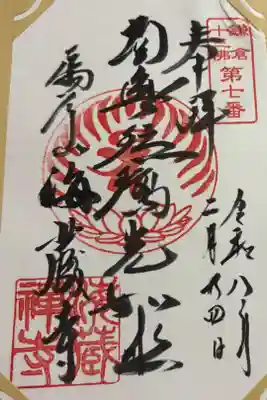 鎌倉
十三佛
第七番
奉拝
南無瑠璃光如来
海蔵寺
令和八年
二月廿四日
海蔵
禅寺